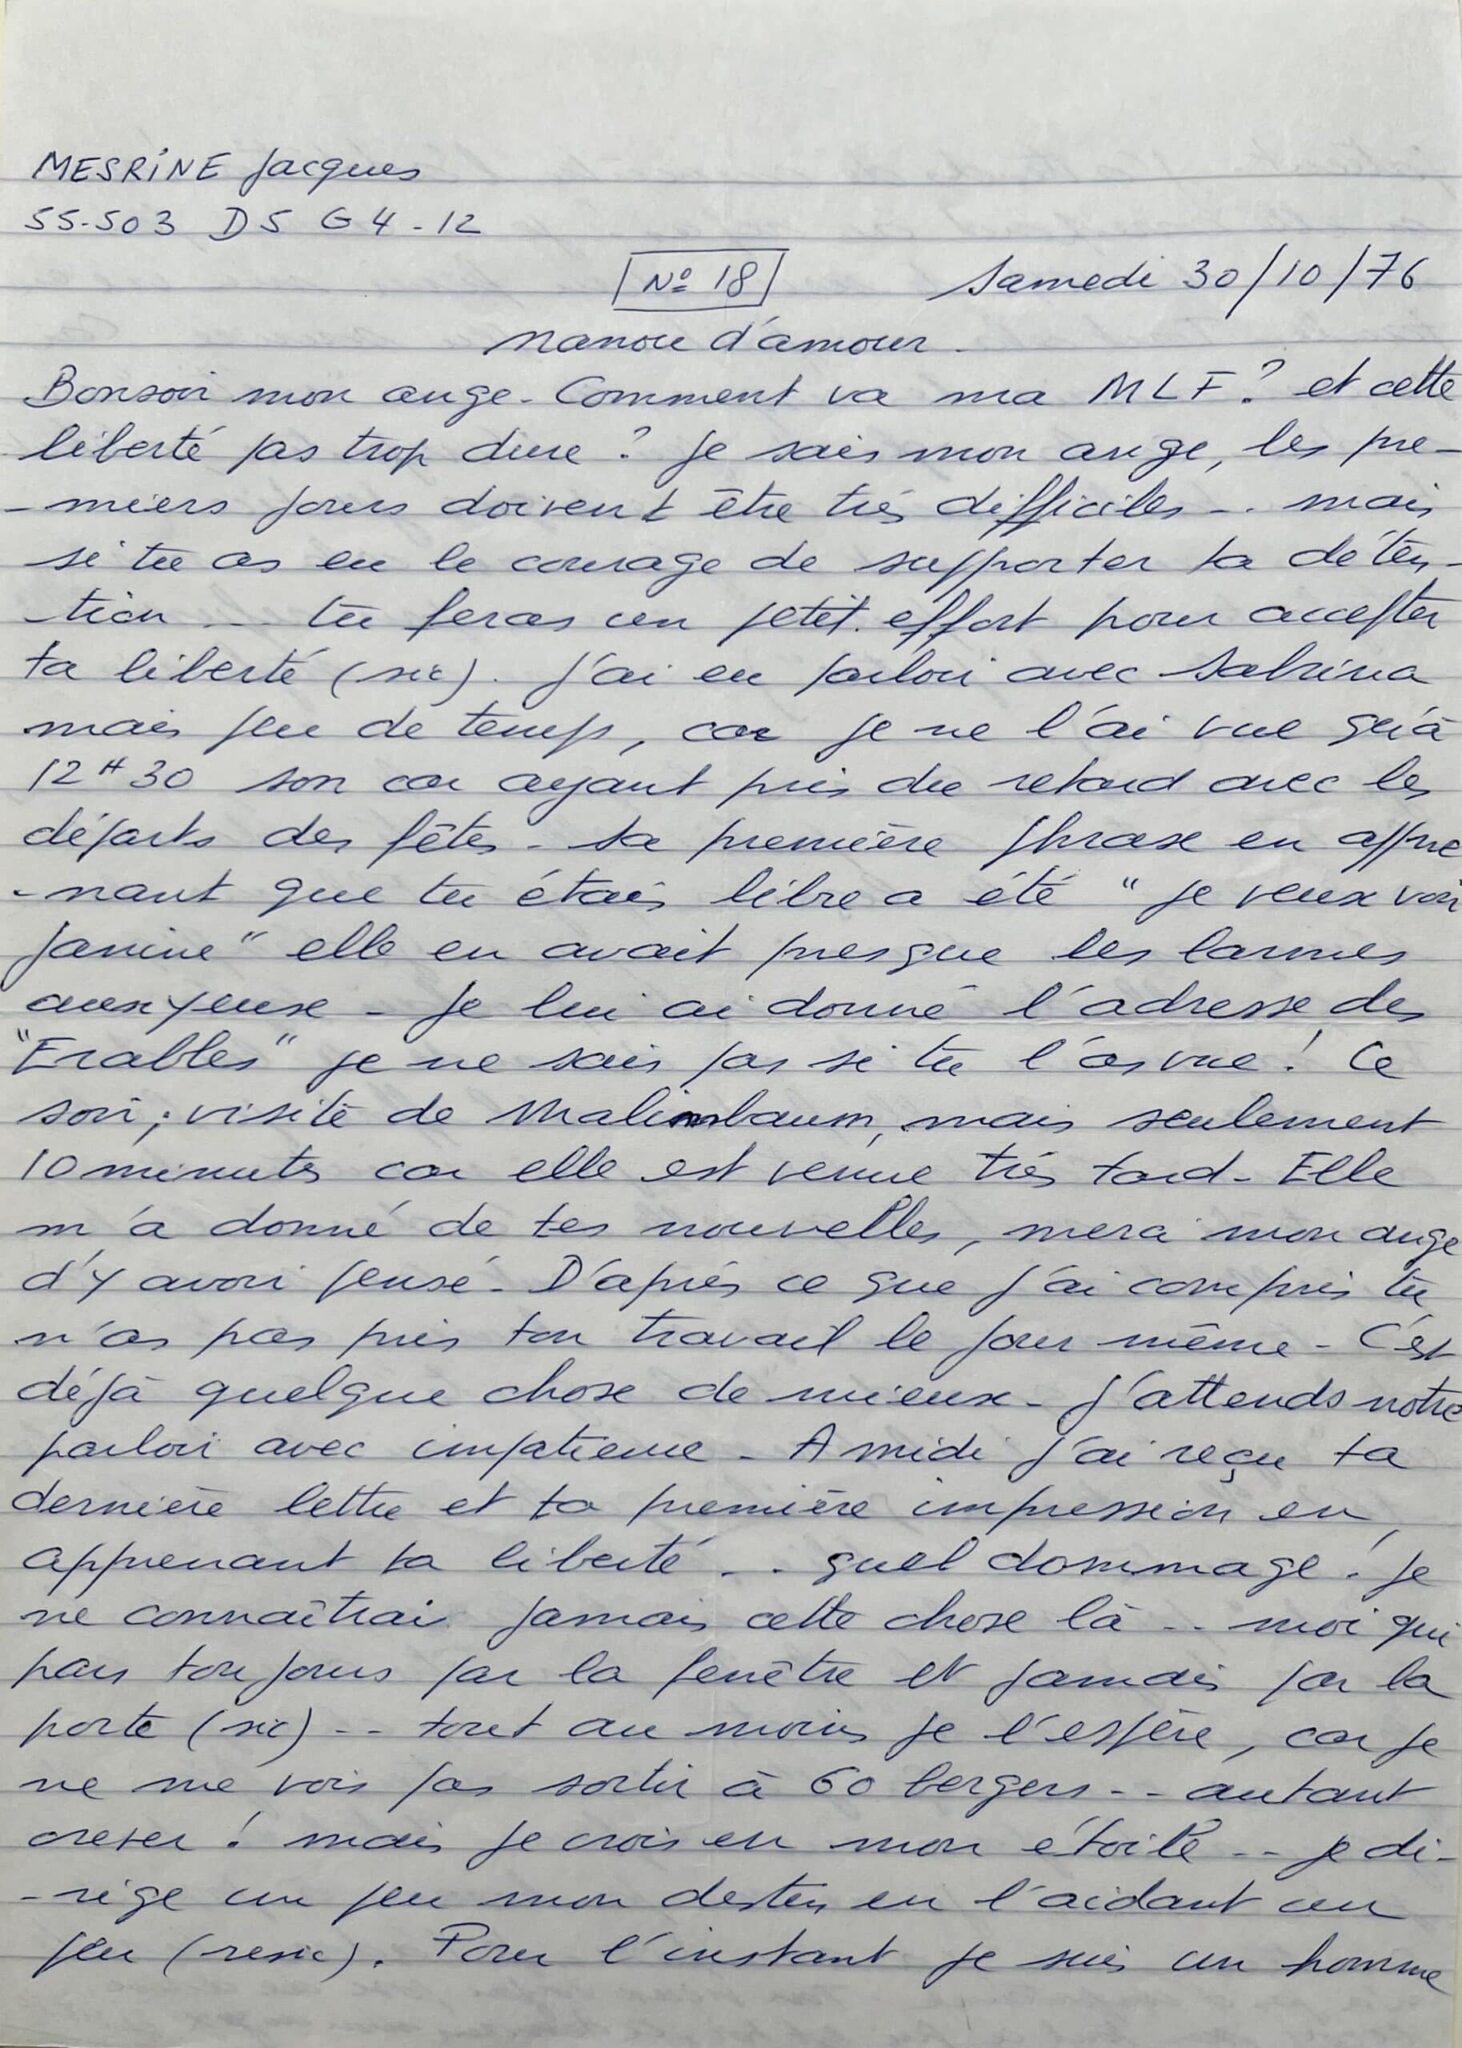 MESRINE Jacques
55-503 D5 G4-12
N° 18
Samedi 30/10/76
nanou d'amour.
Bonsoir mon ange - Comment va ma MLF? et cette
liberté pas trop dure? Je sais mon ange, les pre-
-miers jours doivent être très difficiles... mais
si tu as eu le courage de supporter ta déten-
-tion... tu feras un petit effort pour accepter
ta liberté (sic). J'ai eu parloir avec Sabrina
mais peu de temps, car je ne l'ai vue qu'à
12H30 son car ayant pris du retard avec les
départs des fêtes - Sa première phrase en appre
-nant que tu étais libre a été "je veux voir
Janine" elle en avait presque les larmes
aux yeux - Je lui ai donné l'adresse des
"Erables" je ne sais pas si tu l'as vue! Ce
soir; visite de Malinbaum, mais seulement
10 minutes car elle est venue très tard - Elle
m'a donné de tes nouvelles, merci mon ange
d'y avoir pensé - D'après ce que j'ai compris tu
n'as pas pris ton travail le jour même - C'est
déjà quelque chose de mieux - J'attends notre
parloir avec impatience - A midi j'ai reçu ta
dernière lettre et ta première impression en
apprenant ta liberté... quel dommage! Je
ne connaîtrai jamais cette chose là... moi qui
pars toujours par la fenêtre et jamais par la
porte (sic)... tout au moins je l'espère, car je
ne me vois pas sortir à 60 bergers... autant
crever! mais je crois en mon étoile... je di-
-rige un peu mon destin en l'aidant un
peu (resic). Pour l'instant je suis un homme